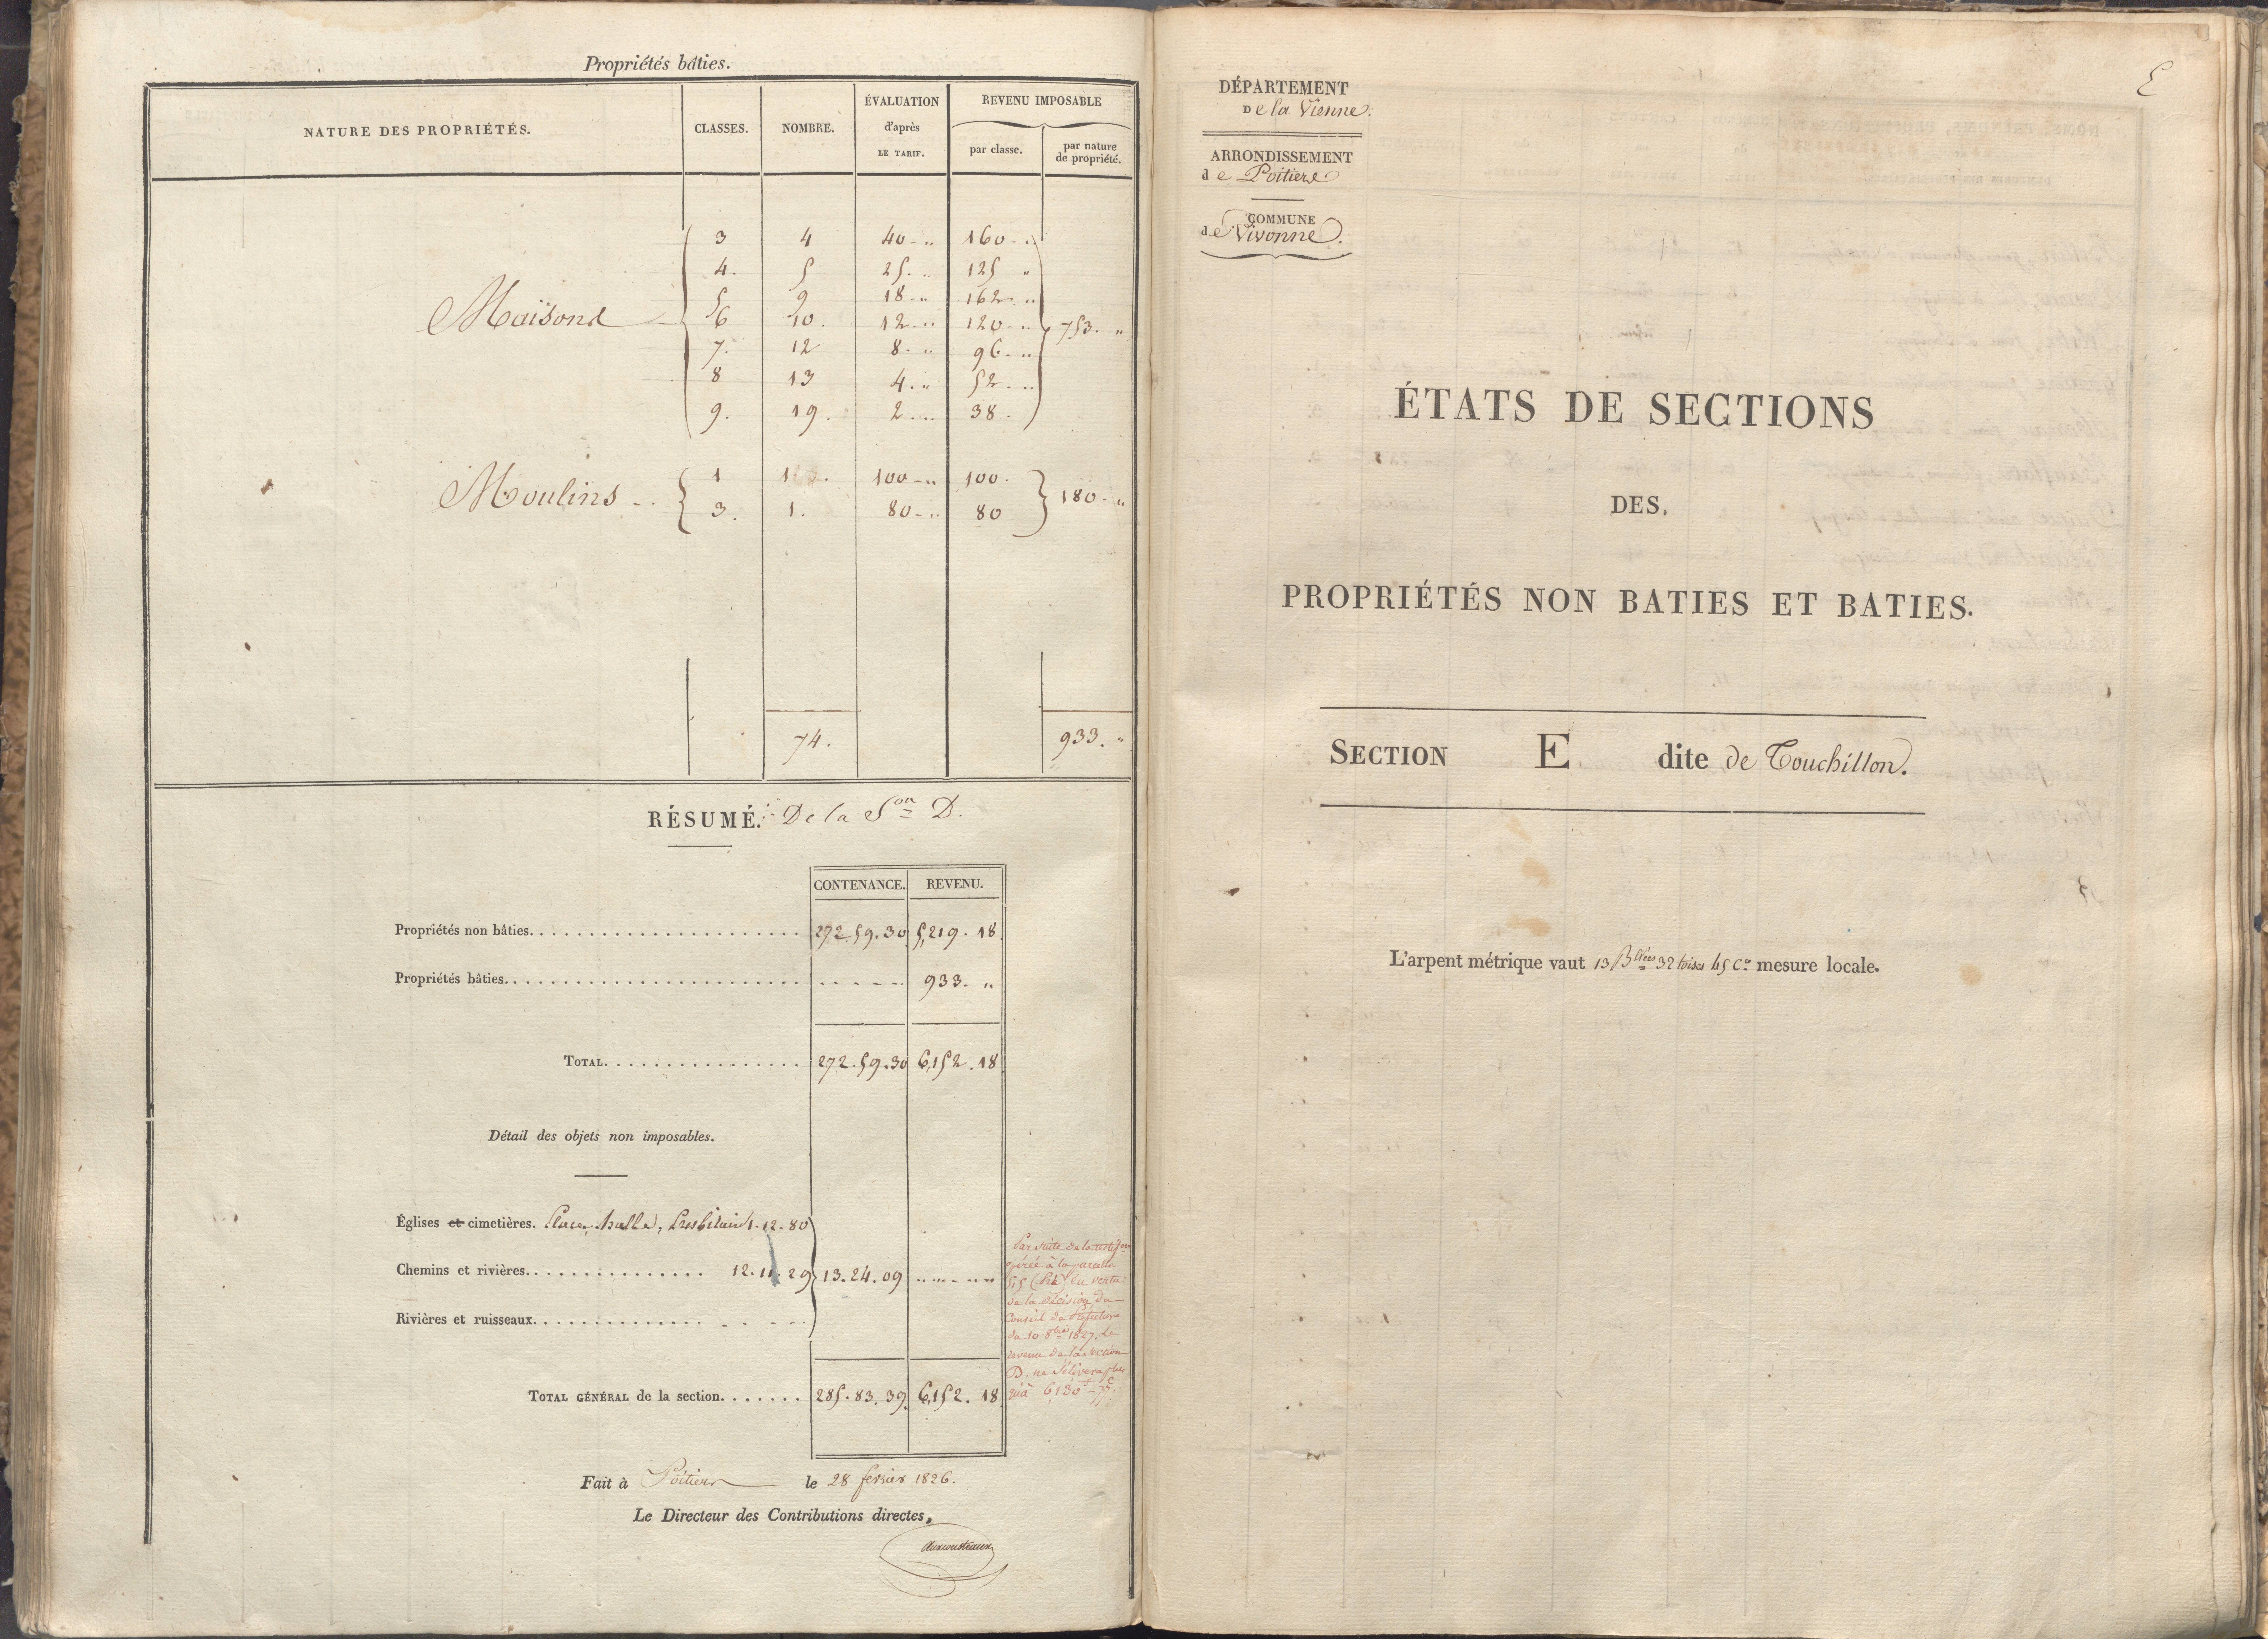 Propriétés bâties.
NATURE DES PROPRIÉTÉS. CLASSES. NOMBRE. ÉVALUATION d'après LE TARIF. REVENU IMPOSABLE par classe. par nature de propriété.
3 4 40 - „ 160 - „
4. 5 25. „ 125 „
5 9 18 - „ 162 - „
Maisons 6 10. 12 - „ 120 - „ 753. „
7. 12 8. „ 96. „
8 13 4. „ 52. „
9. 19. 2. „ 38.
Moulins 1 1 100 - „ 100.
3. 1. 80 - „ 80 180. „
74. 933. „
RÉSUMÉ. De la Son D.
CONTENANCE. REVENU.
Propriétés non bâties. 272.59.30 5,219. 18
Propriétés bâties. 933. „
TOTAL. 272.59.30 6,152. 18
Détail des objets non imposables.
Églises et cimetières. Place, halle, Presbitaire 1.12.80
Chemins et rivières. 12.11.29 13.24.09
Rivières et ruisseaux.
Par suite de la
opérée à la parcelle
515 en vertu
de la décision du
Conseil de Préfecture
du 10 8bre 1827. Le
revenu de la section
D. ne s'élèvera plus
qu'à 6,130f - 77c.
TOTAL GÉNÉRAL de la section. 285.83.39. 6,152. 18
Fait à Poitiers le 28 fevrier 1826.
Le Directeur des Contributions directes,
E
DÉPARTEMENT
De la Vienne.
ARRONDISSEMENT
de Poitiers
COMMUNE
de Vivonne.
ÉTATS DE SECTIONS
DES
PROPRIÉTÉS NON BATIES ET BATIES.
SECTION E dite de Touchillon.
L'arpent métrique vaut 13 Bllées 32 toises 45 Ces mesure locale.